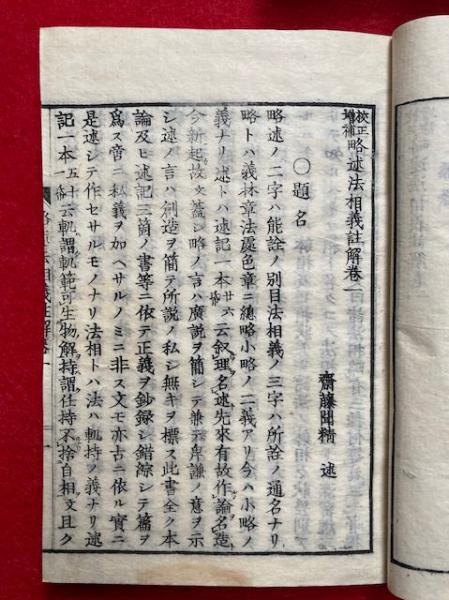 校正増補略述法相義註解卷一
齋藤聞精 述
〇題名
略述ノ二字ハ能詮ノ別目法相義ノ三字ハ所詮ノ通名ナリ
略トハ義林章法處色章ニ總略小略ノ二義アリ今ハ小略ノ
義ナリ述トハ述記一本廿六云叙理名述先來有故作論名造
今新起故文蓋シ略ノ言ハ廣説ヲ簡シテ兼テ卑謙ノ意ヲ示
シ述ノ言ハ創造ヲ簡テ所説ノ私シ無キヲ標ス此書全ク本
論及ヒ述記三箇ノ書等ニ依テ正義ヲ鈔録シ錯綜シテ篇ヲ
爲ス啻ニ私義ヲ加ヘサルノミニ非ス文モ亦古ニ依ル實ニ
是述シテ作セサルモノナリ法相トハ法ハ軌持ノ義ナリ述
記一本五十一云軌謂軌範可生物解持謂任持不捨自相文且ク
相義註解卷一